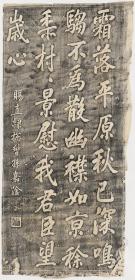 霜落平原秋已深鳴
騶不為散幽襟如京稌
黍村村景慰我君臣望
歲心